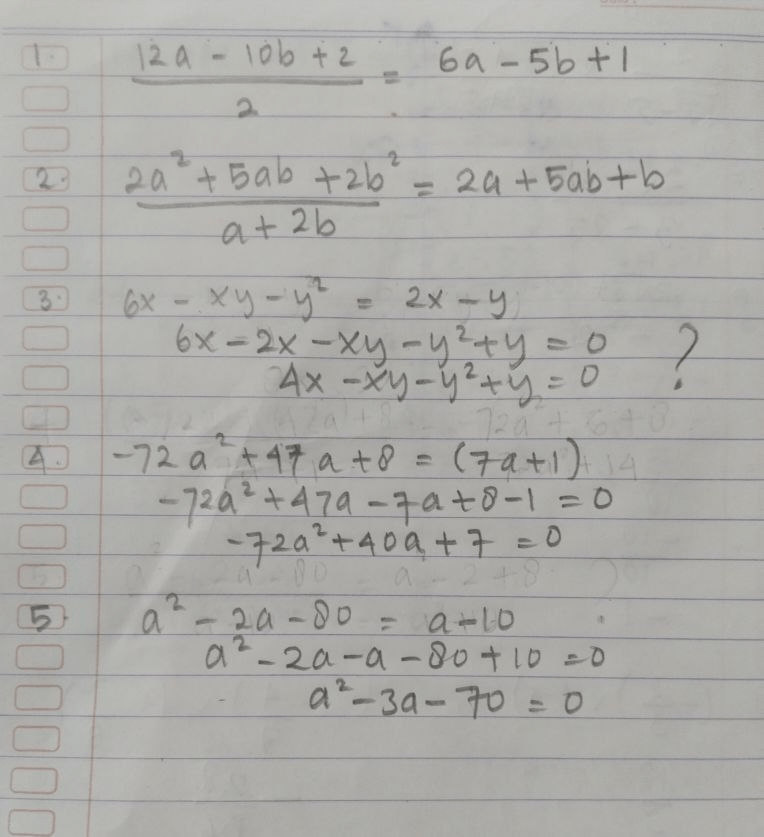 1. 12a - 10b + 2 = 6a - 5b + 1
2
2. 2a² + 5ab + 2b² = 2a + 5ab + b
a + 2b
3. 6x - xy - y² = 2x - y
6x - 2x - xy - y² + y = 0 ?
4x - xy - y² + y = 0
4. -72a² + 47a + 8 = (7a + 1)
-72a² + 47a - 7a + 8 - 1 = 0
-72a² + 40a + 7 = 0
5. a² - 2a - 80 = a - 10
a² - 2a - a - 80 + 10 = 0
a² - 3a - 70 = 0